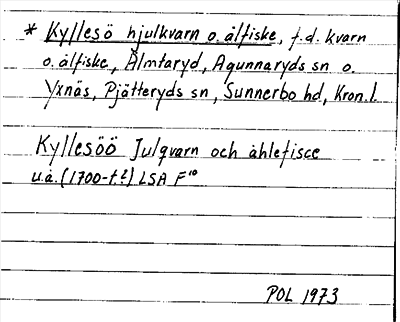 * Kyllesö hjulkvarn o. ålfiske, f.d. kvarn
o. ålfiske, Älmtaryd, Agunnaryds sn o.
Yxnäs, Pjätteryds sn, Sunnerbo hd, Kron. l.
Kyllesöö Julqvarn och åhlefisce
u.å. (1700-t.?) LSA F¹⁰
POL 1973